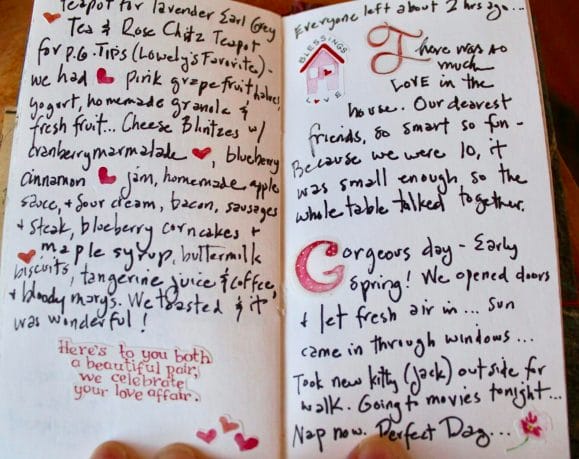 Teapot for lavender Earl Grey
Tea & Rose Chitz Teapot
for P.G. Tips (Lowely's Favorite) -
we had pink grapefruit halves,
yogurt, homemade granola &
fresh fruit... Cheese Blintzes w/
cranberry marmalade, blueberry
cinnamon jam, homemade apple
sauce, & sour cream, bacon, sausages
& steak, blueberry corncakes &
maple syrup, buttermilk
biscuits, tangerine juice & coffee,
& bloody marys. We toasted & it
was wonderful!
Here's to you both
a beautiful pair,
we celebrate
your love affair.
Everyone left about 2 hrs ago...
BLESSINGS
LOVE
There was so
much
LOVE in the
house. Our dearest
friends, so smart so fun -
Because we were 10, it
was small enough, so the
whole table talked together.
Gorgeous day - Early
Spring! We opened doors
& let fresh air in... sun
came in through windows...
Took new kitty (Jack) outside for
walk. Going to movies tonight...
Nap now. Perfect Day...